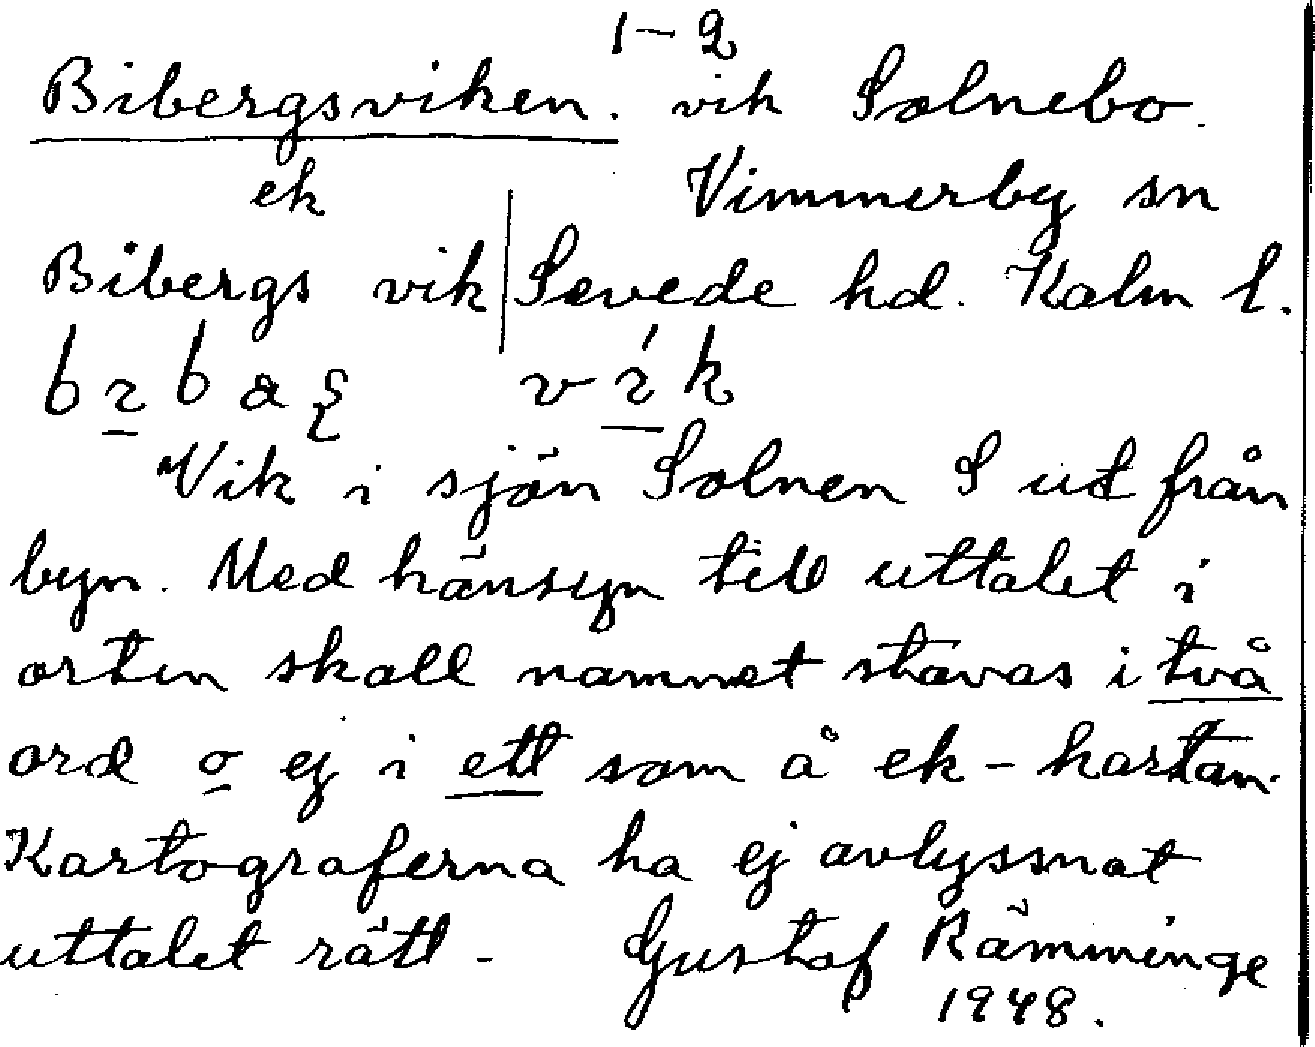 1–2
Bibergsviken. vik Solnebo.
ek Vimmerby sn
Bibergs vik Sevede hd. Kalm l.
Vik i sjön Solnen S ut från
byn. Med hänsyn till uttalet i
orten skall namnet stavas i två
ord o ej i ett som å ek-kartan.
Kartograferna ha ej avlyssnat
uttalet rätt. Gustaf Rämminge
1948.